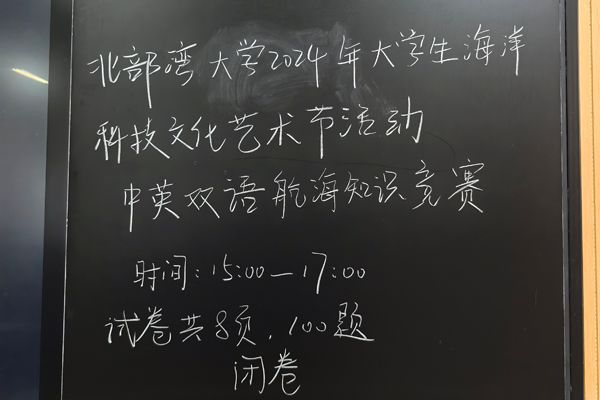 北部湾大学2024年大学生海洋
科技文化艺术节活动
中英双语航海知识竞赛
时间:15:00—17:00
试卷共8页,100题
闭卷